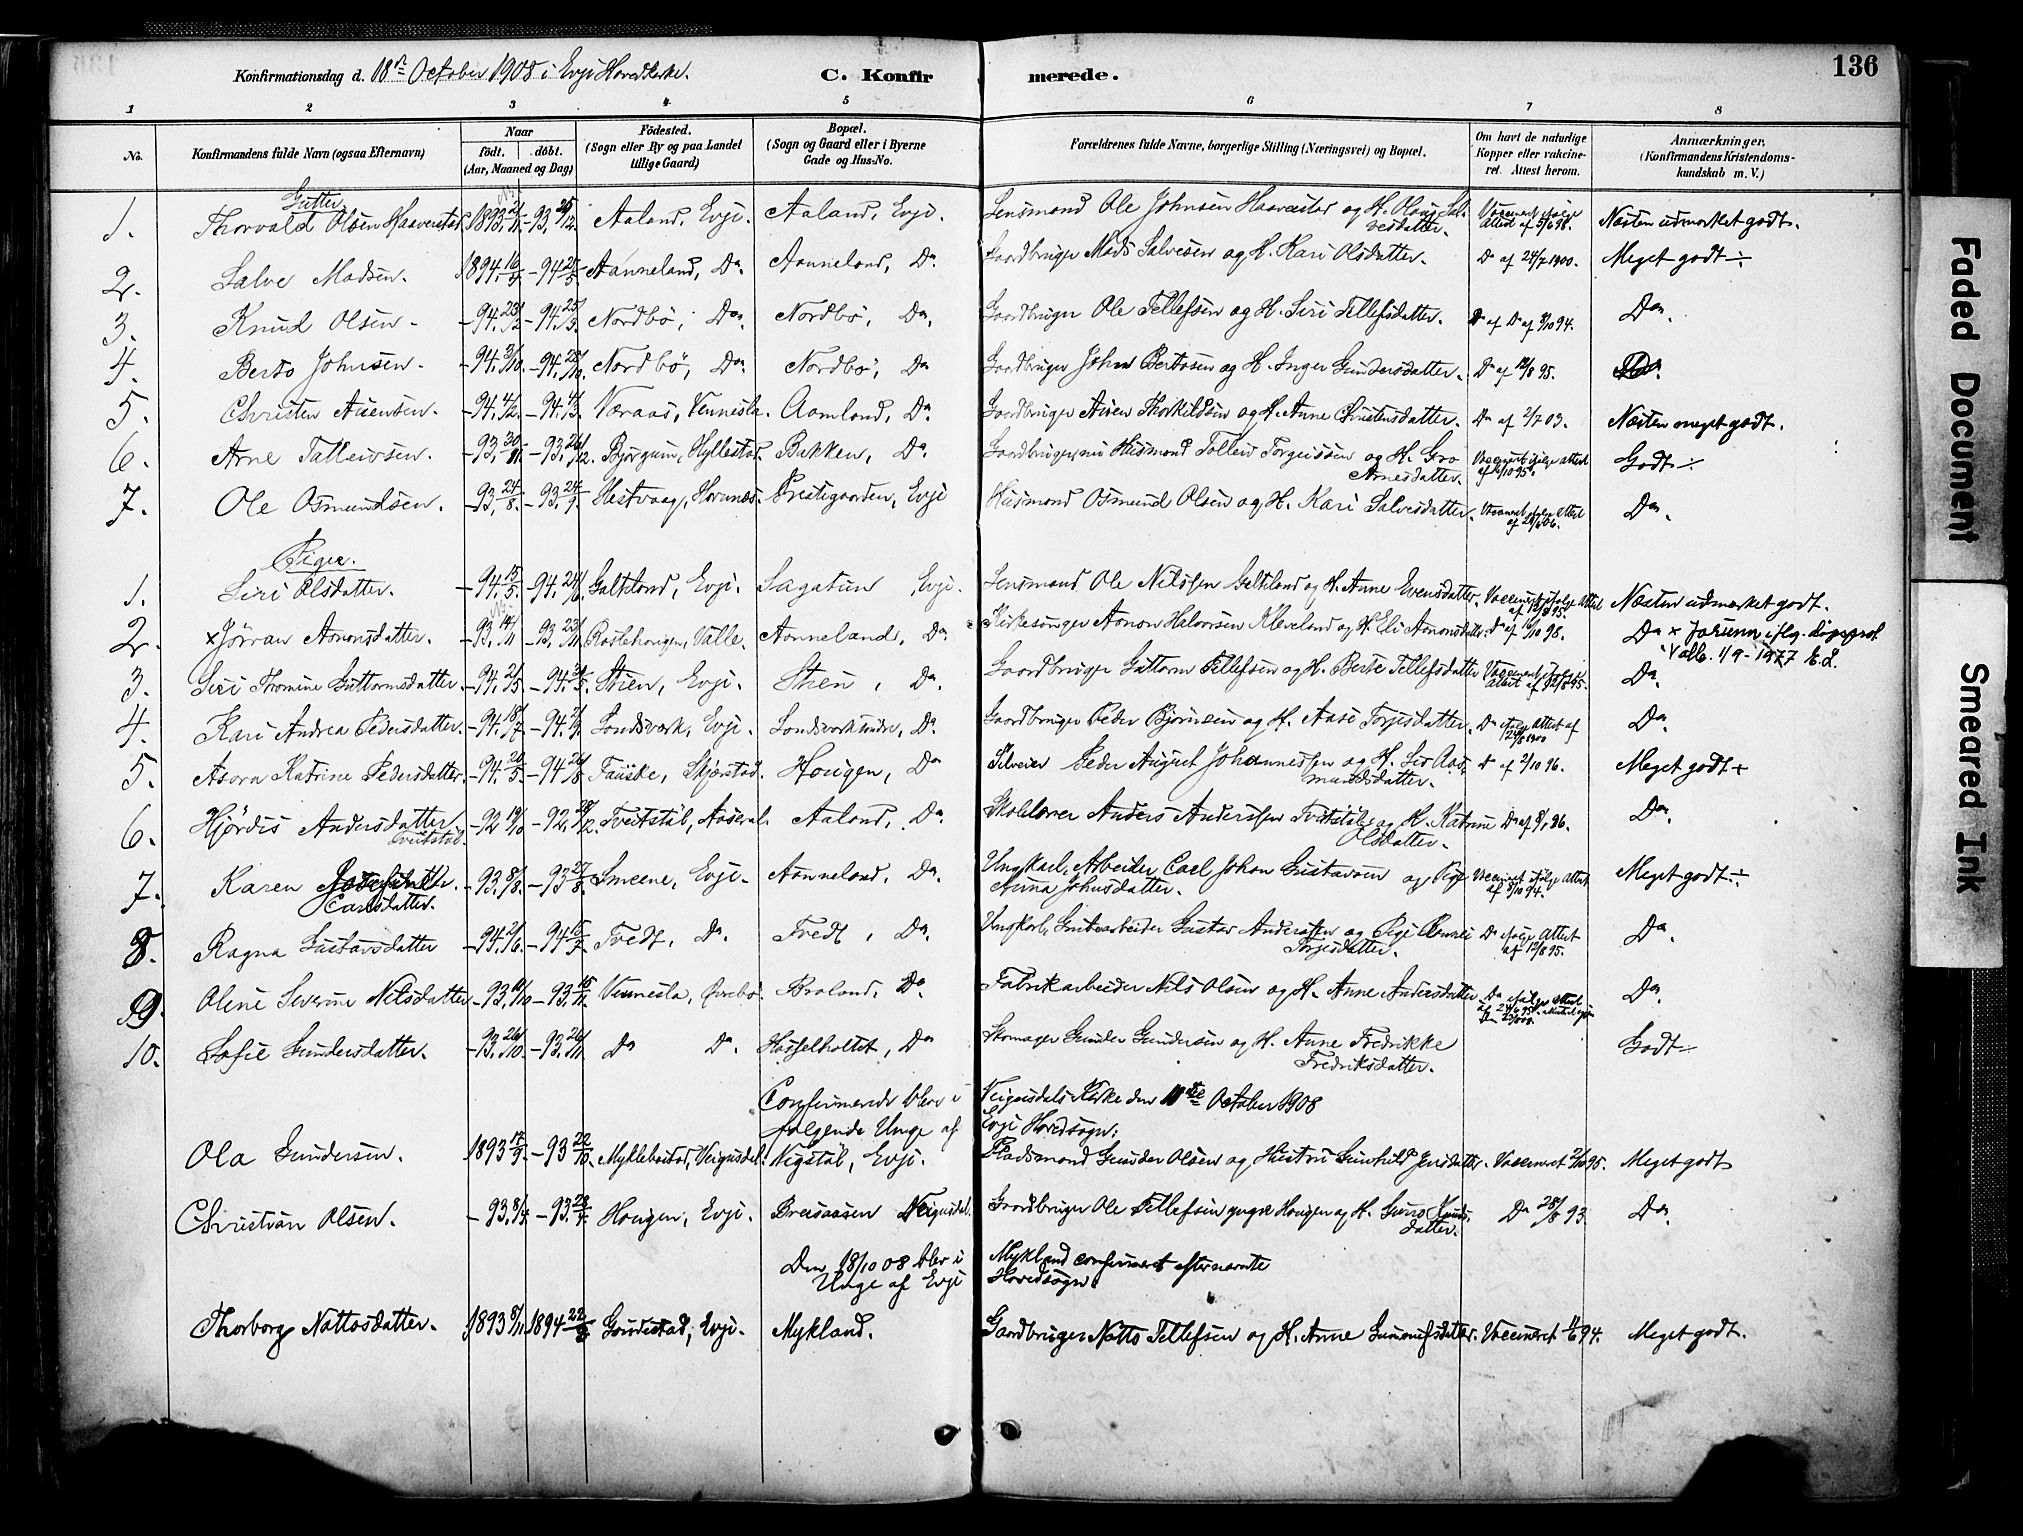 136
Konfirmationsdag d. 18de October 1908 i Evje Hovedkirke. C. Konfirmerede.
1 2 3 4 5 6 7 8
No. Konfirmandens fulde Navn (ogsaa Efternavn) Naar født. døbt. (Aar, Maaned og Dag) Födested. (Sogn eller By og paa Landet tillige Gaard) Bopæl. (Sogn og Gaard eller i Byerne Gade og Hus-No. Forældrenes fulde Navne, borgerlige Stilling (Næringsvei) og Bopæl. Om havt de naturlige Kopper eller vakcineret. Attest herom. Anmærkninger. (Konfirmandens Kristendomskundskab m. V.)
Gutter
1. Thorvald Olsen Haaverstad 1893 Aaland, Evje. Aaland, Evje. Lensmand Ole Johnsen Haaverstad og H. Olsdatter. Næsten udmærket godt.
2. Salve Madsen. 1894 16/4 -94 Aanneland, Do. Aanneland, Do. Gaardbruger Mads Salvesen og H. Kari Olsdatter. Do af 24/7 1900. Meget godt ÷
3. Knud Olsen. -94. 23/2 -94. 25/3 Nordbø, Do. Nordbø, Do. Gaardbruger Ole Tellefsen og H. Siri Tellefsdatter. Do af 94. Do.
4. Berto Johnsen. -94. 3/10 -94. 28/10 Nordbø, Do. Nordbø, Do. Gaardbruger John Bertosen og H. Inger Gundersdatter. Do af 12/8 95. Do.
5. Christen Ausensen. -94. 4/2 -94. 4/3 Væraas, Vennesla. Aamland, Do. Gaardbruger Ausen Thorkildsen og H. Anne Christensdatter. Do af 2/7 03. Næsten meget godt.
6. Arne Talleivsen. -93. 30/11 -93. 26/12 Bjørgum, Hyllestad. Bakken, Do. Gaardbruger, nu Husmand Talleiv Torgeirsen og H. Gro Arnesdatter. Godt ÷
7. Ole Osmundsen. -93. 24/8 -93. 24/9 Hestvaag, Hornnes. Prestegaarden, Evje Husmand Osmund Olsen og H. Kari Salvesdatter. Do.
Piger.
1. Siri Olsdatter. -94. 15/5 -94. 24/6 Galteland, Evje. Sagatun, Evje. Lensmand Ole Nilssen Galteland og H. Anne Evensdatter. Næsten udmærket godt.
2. × Jørran Aanonsdatter. -93. 14/11 -93. 23/11 Valle. Aanneland, Do. Kirkesanger Aanon Halvorsen Kleveland og H. Eli Aanonsdatter. Do af 10 98. Do × Jorunn iflg. dåpsprot.
Valle. 1/9-1977 E.L.
3. Siri Thomine Guttormsdatter -94. 2/5 -94. 3/5 Steen, Evje. Steen, Do. Gaardbruger Guttorm Tellefsen og H. Berte Tellefsdatter Do.
4. Kari Andrea Pedersdatter. -94. 18/7 -94. 2/9 Landsverk, Evje. Landsverk, Do. Gaardbruger Peder Bjørnsen og H. Aase Torjesdatter. Do.
5. Asora Katrine Pedersdatter. -94. 20/5 -94. 26/8 Fauske, Skjerstad. Hougen, Do Peder August Johannessen og H. Siv Aasmundsdatter. Do af 2/10 96. Meget godt +
6. Hjørdis Andersdatter Tveitstøl. -92 19/10 -92. Tveitstøl, Aaseral. Aaland, Do. Skolelærer Anders Anderssen Tveitstøl og H. Katrine Olsdatter. Do.
7. Karen Carlsdatter. -93. 8/8 -93 27/8 Smeene, Evje. Aanneland, Do. Ungkarl, Arbeider Carl Johan Gustavsen og Pige Anna Johnsdatter. Meget godt ÷
8. Ragna Gustavsdatter -94. 2/6 -94 15/7 Tvedt, Do. Tvedt, Do. Ungkarl, Grubearbeider Gustav Anderssen og Pige Torjesdatter. Do ifølge Attest af 12/8 95. Do.
9. Olene Severine Nilsdatter -93. 10/10 -93. Vennesla, Øvrebø. Braland, Do. Fabrikarbeider Nils Olsen og H. Anne Andersdatter Do.
10. Sofie Gundersdatter. -93. 26/10 -93. 26/11 Do Do. Hasselholtet, Do Skomager Gunder Gundersen og H. Anne Fredrikke Fredriksdatter. Godt ÷
Confirmerede blev i Veigusdals Kirke den 11te October 1908
følgende Unge af Evje Hovedsogn:
Ola Gundersen. 1893 17/9 -93 22/10 Myklebustad, Veigusdal. Nigstøl, Evje. Pladsmand Gunder Olsen og Hustru Gunhild Jensdatter. Vaccineret 2/10 95. Meget godt
Christian Olsen. -93. -93. Hougen, Evje. Breisaasen Veigusdal. Gaardbruger Ole Tellefsen yngre Hougen og H. Knudsdatter. Do 28/8 93. Do.
Den 18/10 08 blev i Mykland confirmeret efternævnte
Unge af Evje Hovedsogn:
Thorborg Nattosdatter. 1893 8/11 1894 Evje. Mykland. Gaardbruger Natto Tellefsen og H. Anne Gunulfsdatter. Vaccineret 94. Meget godt.
Faded Document
Smeared Ink